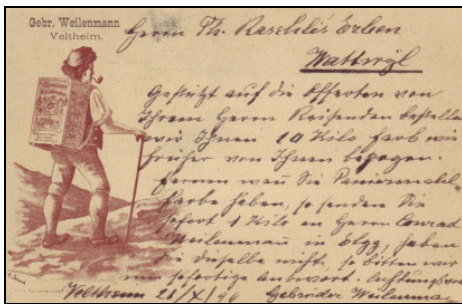 Gebr. Weilenmann
Veltheim.
Herrn Th. Raschlis Erben
Wattwyl
Gestützt auf die Offerten von
Ihrem Herrn Reisenden bestellen
wir Ihnen 10 Kilo farb wie
früher von Ihnen bezogen.
Ferner wenn Sie
farbe haben, so senden Sie
sofort 1 Kilo an Herrn Conrad
Weilenmann in Elgg, haben
Sie dieselbe nicht, so bitten wir
um sofortige Antwort. Achtungsvoll
Veltheim 21/X/99 Gebrüder Weilenmann